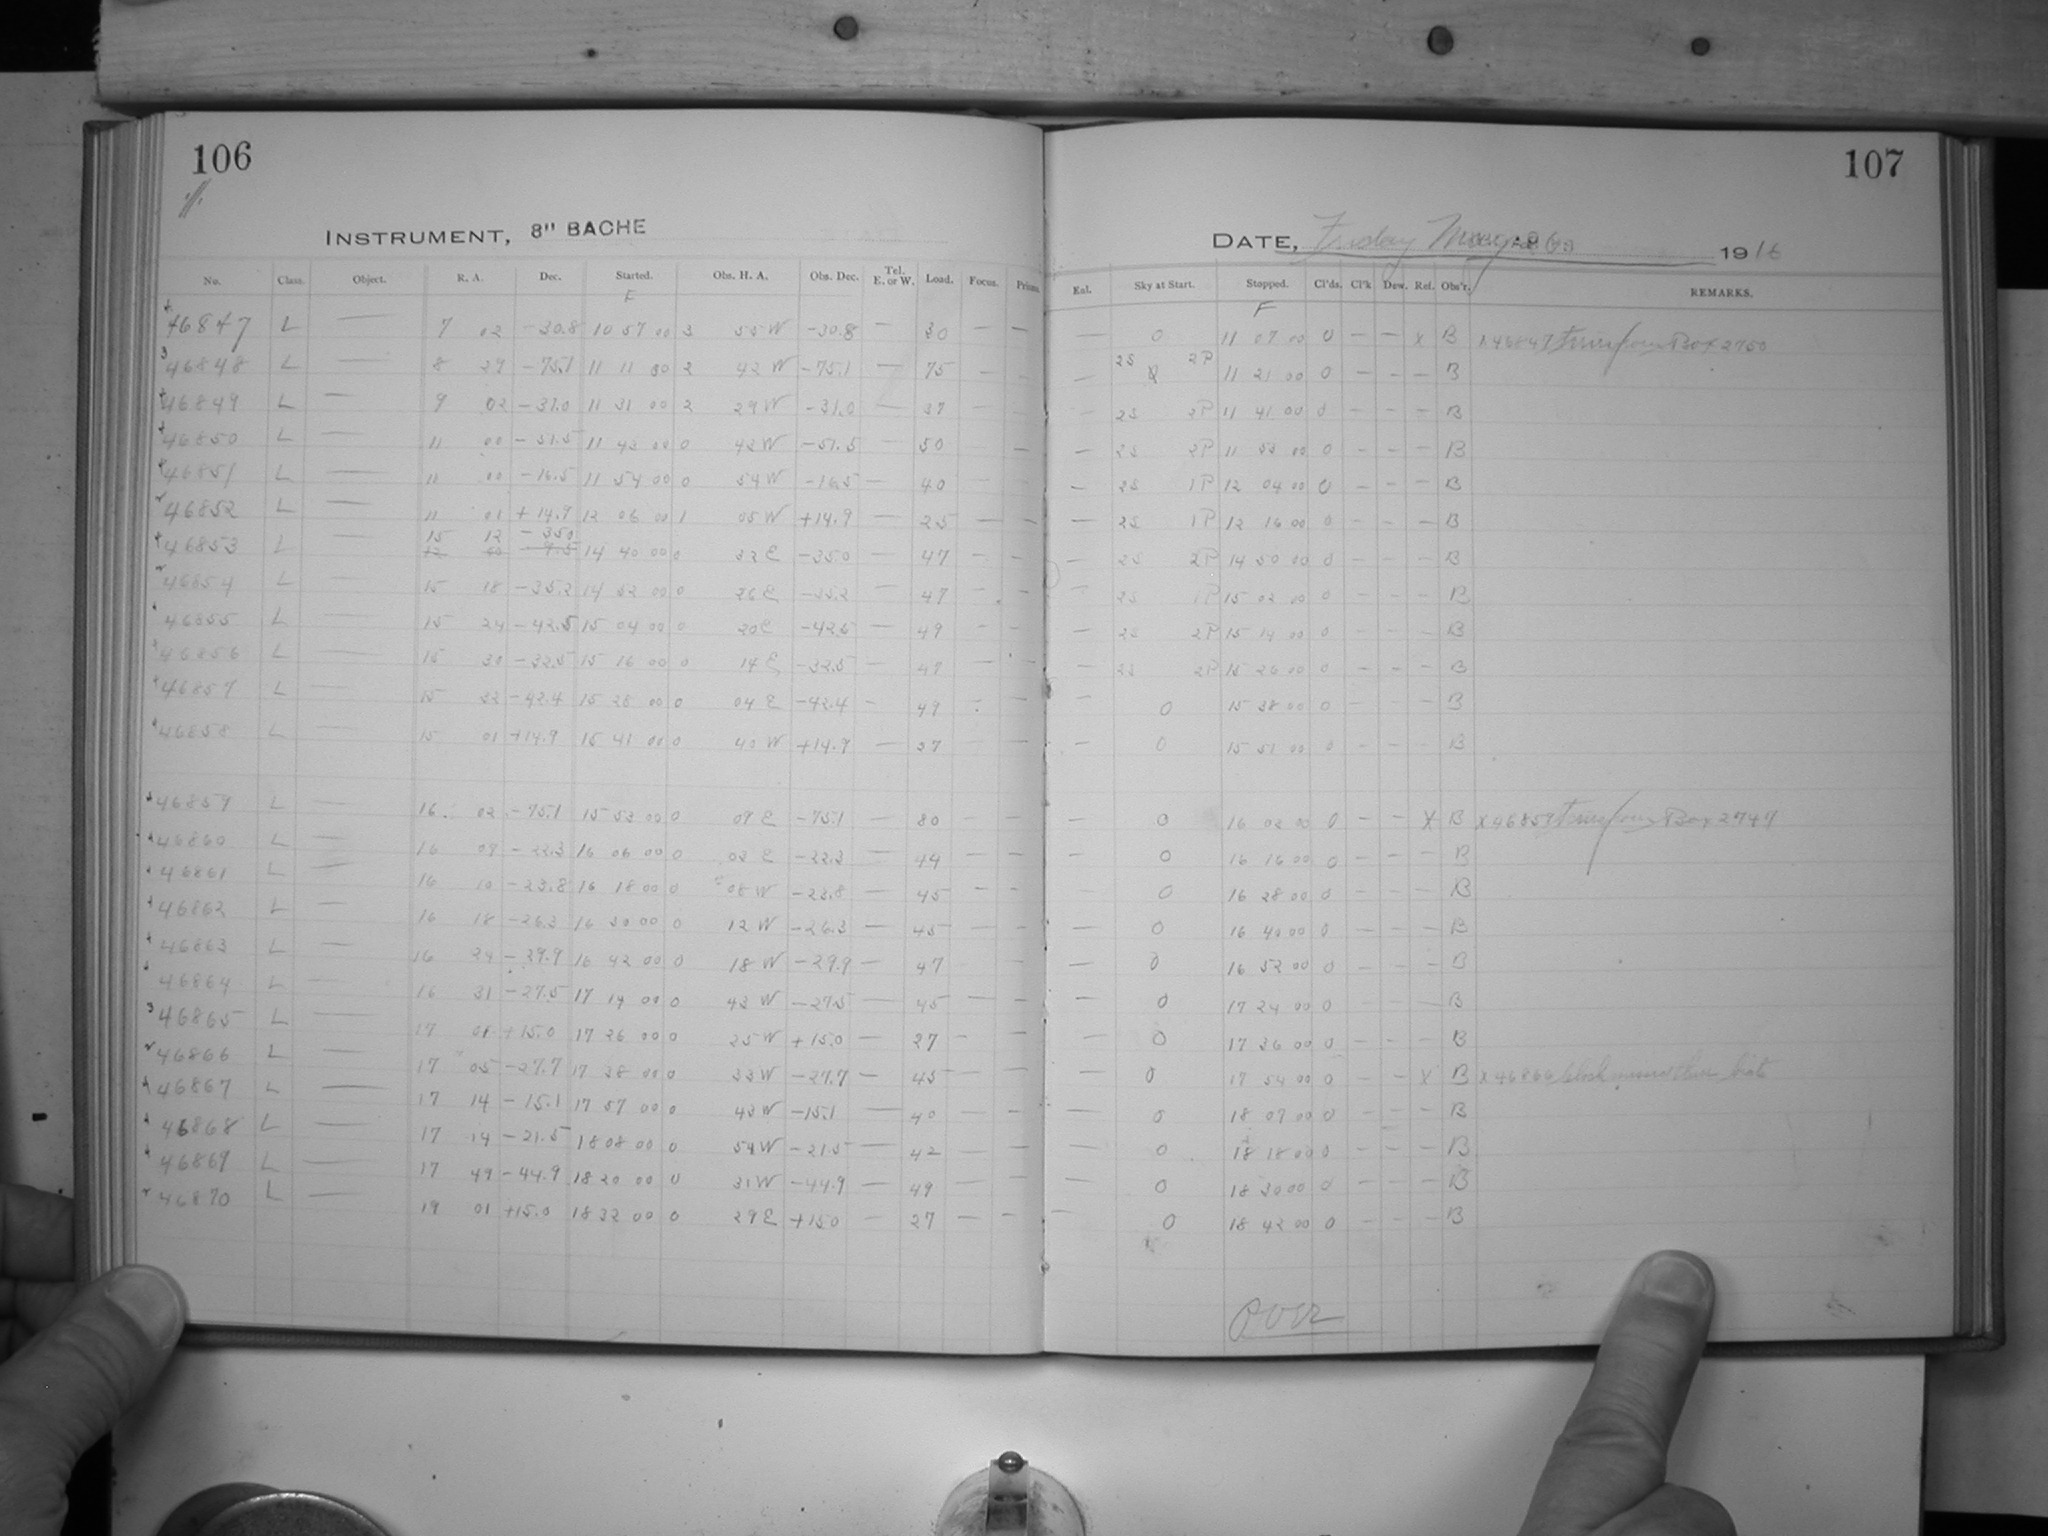 106
107
INSTRUMENT, 8" BACHE
DATE, Friday May 26 1916
No. Class. Object. R. A. Dec. Started. Obs. H. A. Obs. Dec. Tel. E. or W. Load. Focus. Prism. Exl. Sky at Start. Stopped. Cl'ds. Cl'k Dew. Ref. Obs'r. REMARKS.
F F
46847 L — 7 02 -30.8 10 57 00 3 55 W -30.8 — 30 — — — 0 11 07 00 0 — — x B x46847 Box 2750
46848 L — 8 29 -75.1 11 11 00 2 42 W -75.1 — 75 — — — 2S 2P 11 21 00 0 — — — B
46849 L — 9 02 -31.0 11 31 00 2 29 W -31.0 — 37 — — — 2S 2P 11 41 00 0 — — — B
46850 L — 11 00 -51.5 11 43 00 0 43 W -51.5 — 50 — — — 2S 2P 11 53 00 0 — — — B
46851 L — 11 00 -16.5 11 54 00 0 54 W -16.5 — 40 — — — 2S 1P 12 04 00 0 — — — B
46852 L — 11 01 +14.9 12 06 00 1 05 W +14.9 — 25 — — — 2S 1P 12 16 00 0 — — — B
15 12 -35.0
46853 L — 14 40 00 0 32 E -35.0 — 47 — — — 2S 2P 14 50 00 0 — — — B
46854 L — 15 18 -35.2 14 52 00 0 26 E -35.2 — 47 — — — 2S 1P 15 02 00 0 — — — B
46855 L — 15 24 -42.5 15 04 00 0 20 E -42.5 — 49 — — — 2S 2P 15 14 00 0 — — — B
46856 L — 15 30 -32.5 15 16 00 0 14 E -32.5 — 47 — — — 2S 2P 15 26 00 0 — — — B
46857 L — 15 32 -42.4 15 28 00 0 04 E -42.4 — 49 — — — 0 15 38 00 0 — — — B
46858 L — 15 01 +14.9 15 41 00 0 40 W +14.9 — 37 — — — 0 15 51 00 0 — — — B
46859 L — 16 02 -75.1 15 53 00 0 09 E -75.1 — 80 — — — 0 16 02 00 0 — — x B x46859 Box 2747
46860 L — 16 09 -22.3 16 06 00 0 03 E -22.3 — 44 — — — 0 16 16 00 0 — — — B
46861 L — 16 10 -23.8 16 18 00 0 08 W -23.8 — 45 — — — 0 16 28 00 0 — — — B
46862 L — 16 18 -26.3 16 30 00 0 12 W -26.3 — 45 — — — 0 16 40 00 0 — — — B
46863 L — 16 24 -29.9 16 42 00 0 18 W -29.9 — 47 — — — 0 16 52 00 0 — — — B
46864 L — 16 31 -27.5 17 14 00 0 43 W -27.5 — 45 — — — 0 17 24 00 0 — — — B
46865 L — 17 01 +15.0 17 26 00 0 25 W +15.0 — 27 — — — 0 17 36 00 0 — — — B
46866 L — 17 05 -27.7 17 38 00 0 33 W -27.7 — 45 — — — 0 17 54 00 0 — — x B x46866 clock missed
46867 L — 17 14 -15.1 17 57 00 0 43 W -15.1 — 40 — — — 0 18 07 00 0 — — — B
46868 L — 17 14 -21.5 18 08 00 0 54 W -21.5 — 42 — — — 0 18 18 00 0 — — — B
46869 L — 17 49 -44.9 18 20 00 0 31 W -44.9 — 49 — — — 0 18 30 00 0 — — — B
46870 L — 19 01 +15.0 18 32 00 0 29 E +15.0 — 27 — — — 0 18 42 00 0 — — — B
over